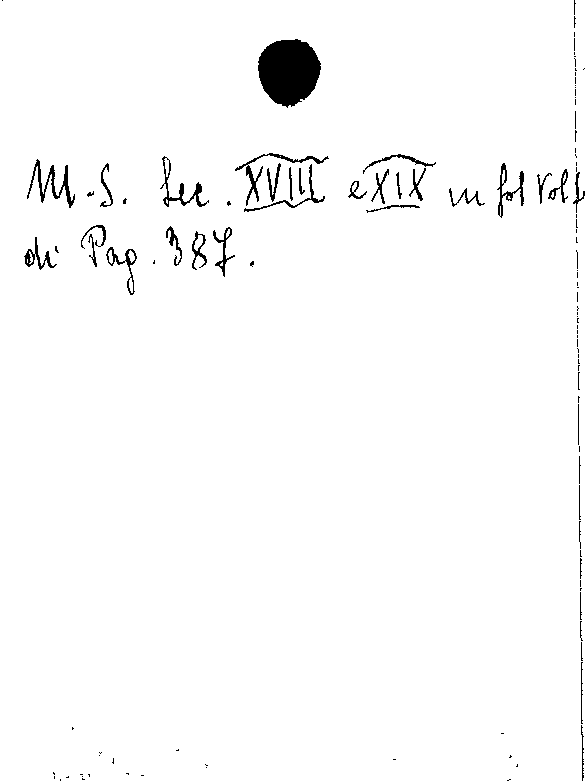 M.S. Sec. XVIII e XIX in fol Vol 1
di Pag. 387.